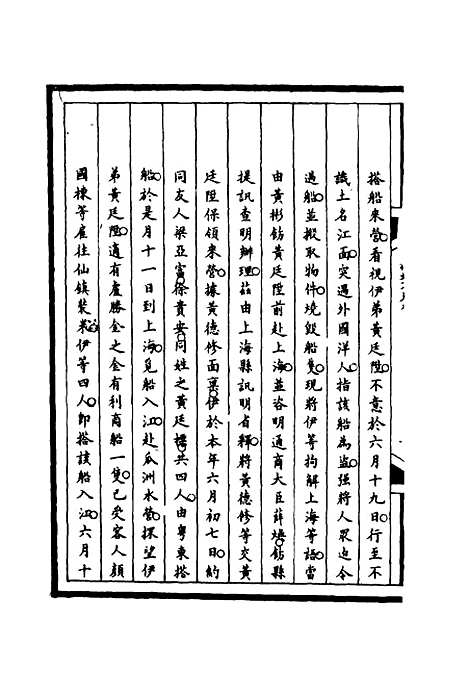 搭船來營看視伊弟黃廷陞不意於六月十九日行至不
識土名江面突遇外國洋人指該船為盜強將人眾迫令
過船並搬取物件燒毀船隻現將伊等拘解上海等語當
由黃彬飭黃廷陞前赴上海並咨明通商大臣薛煥飭縣
提訊查明辦理茲由上海縣訊明省釋將黃德修等交黃
廷陞保領來營據黃德修面稟伊於本年六月初七日約
同友人梁亞富徐貴安同姓之黃廷標共四人由粵東搭
船於是月十一日到上海覓船入江赴瓜洲水營探望伊
弟黃廷陞適有盧勝金之金有利商船一隻已受客人顏
國棟等雇往仙鎮裝米伊等四人即搭該船入江六月十